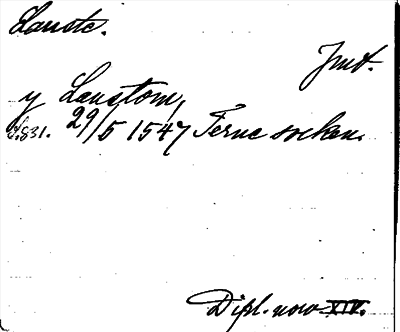 Lauste.
Jmt.
y Laustom,
s.831. 29/5 1547 Ferne socken.
Dipl. norv XIV.